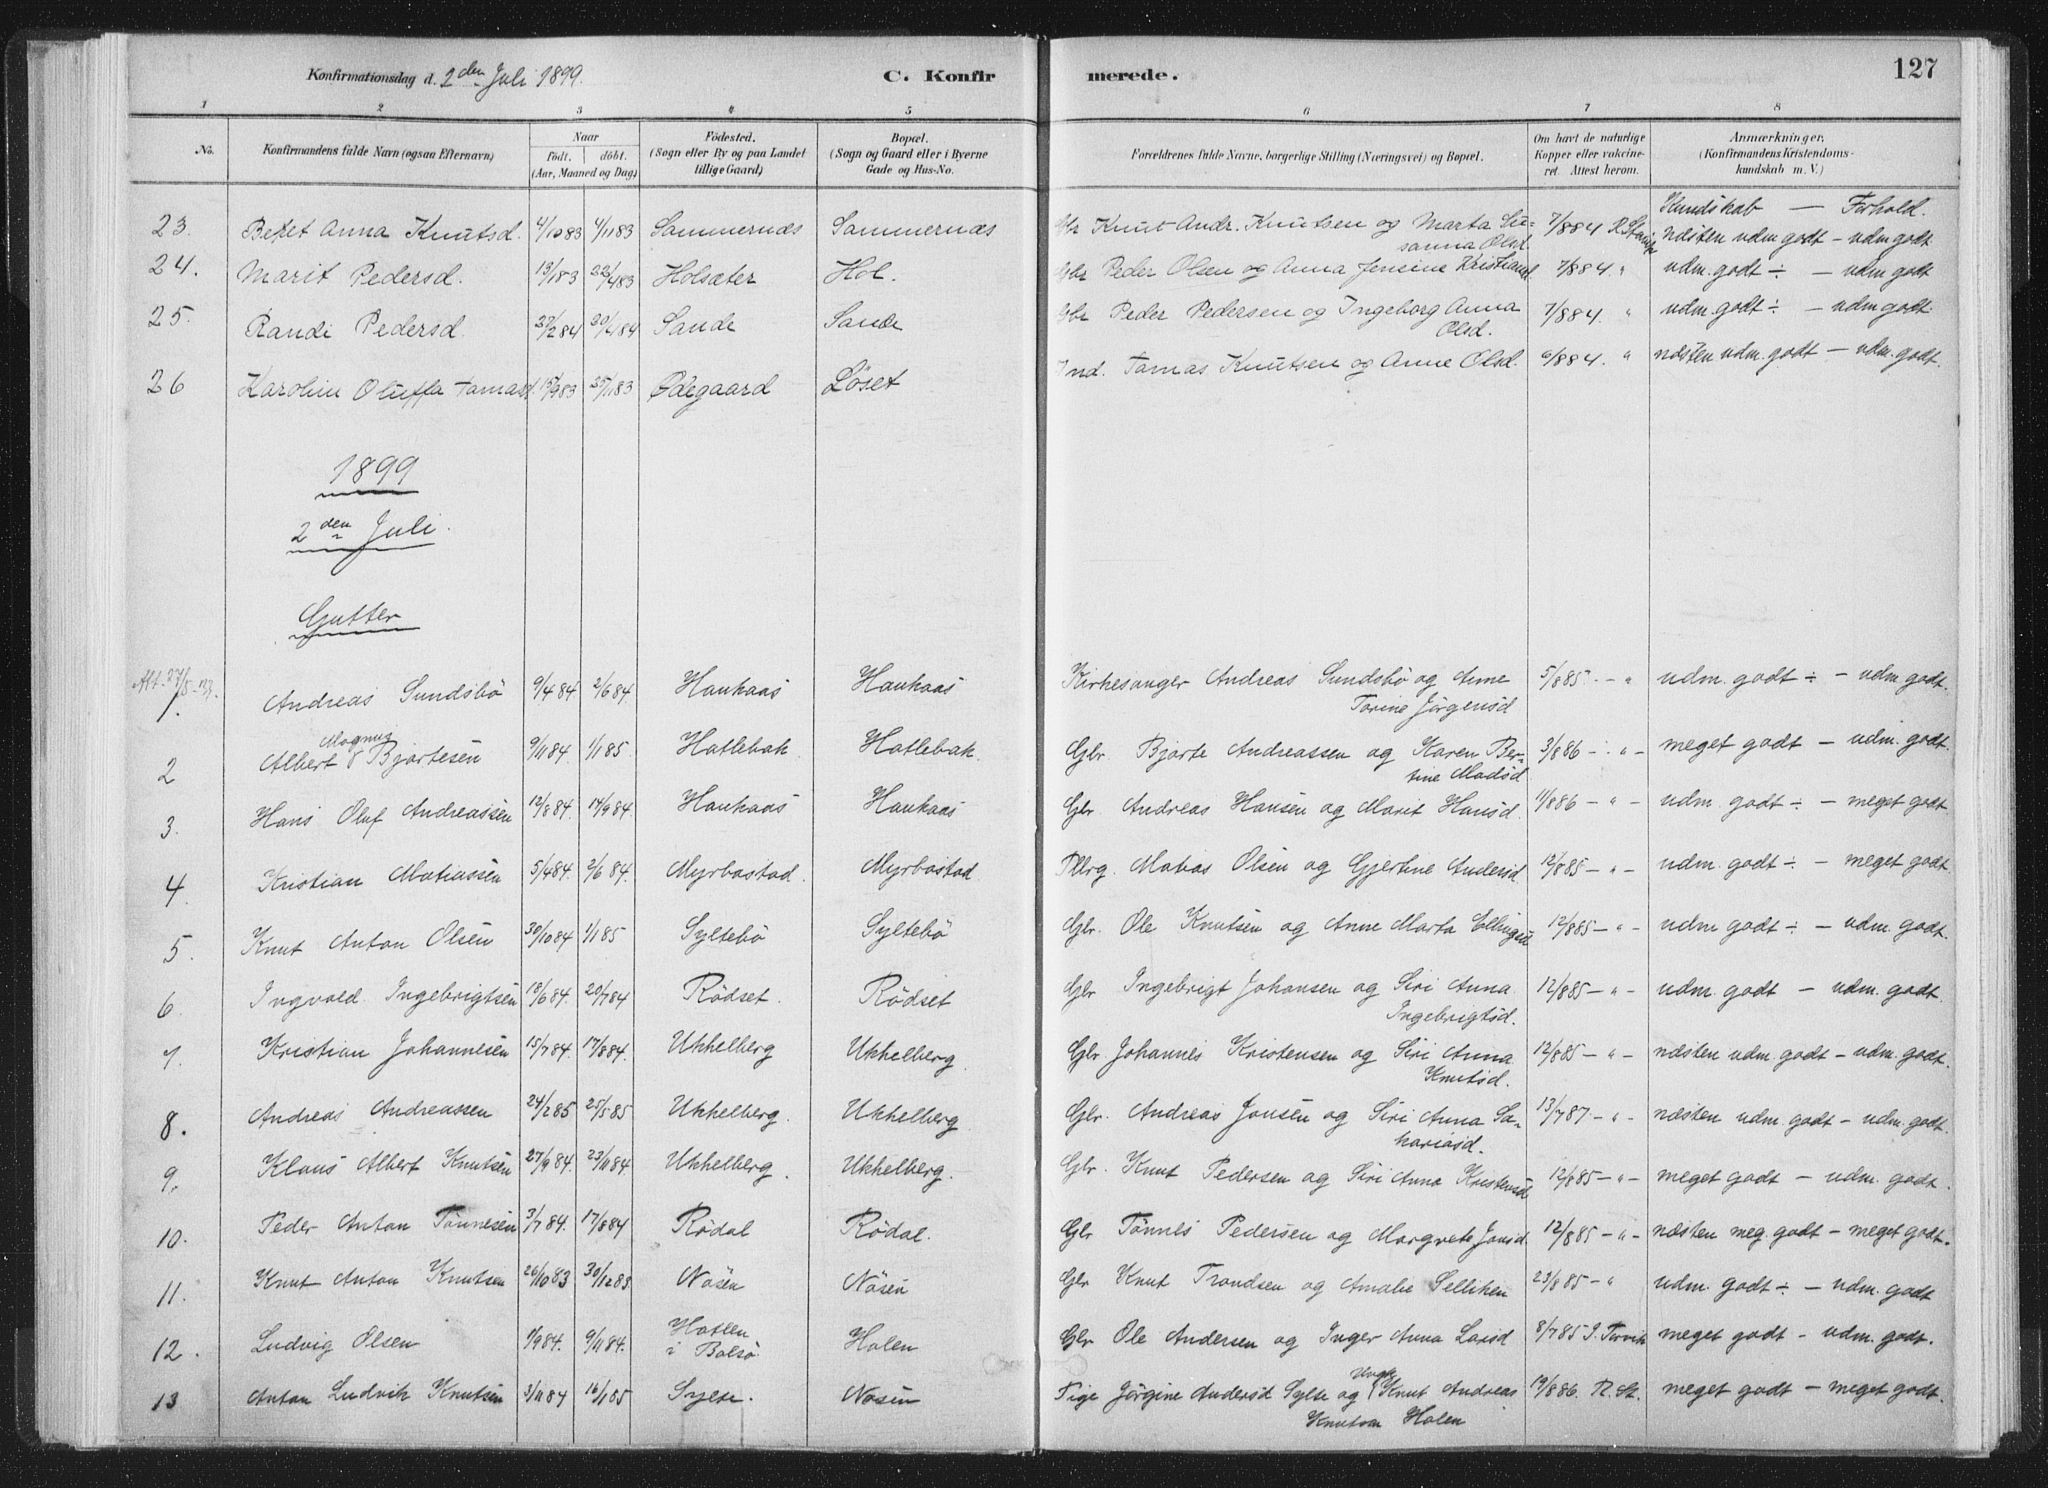 Konfirmationsdag d. 2den Juli 1899.
C. Konfirmerede.
127
1 2 3 4 5 6 7 8
No.
Konfirmandens fulde Navn (ogsaa Efternavn).
Naar
födt. döbt.
(Aar, Maaned og Dag)
Födested.
(Sogn eller By og paa Landet
tillige Gaard)
Bopæl.
(Sogn og Gaard eller i Byerne
Gade og Hus-No.
Forældrenes fulde Navne, borgerlige Stilling (Næringsvei) og Bopæl.
Om havt de naturlige
Kopper eller vakcine-
ret. Attest herom.
Anmærkninger,
(Konfirmandens Kristendoms-
kundskab m. V.)
Kundskab — Forhold.
23. Beret Anna Knutsd. 4/10 83 4/11 83 Sammernæs Sammernæs Gbr Knut Andr. Knutsen og Marta Su- 7/8 84 næsten udm godt – udm godt
sanna Olsd.
24. Marit Pedersd. 13/1 83 22/4 83 Holsæter Hol. Gbr Peder Olsen og Anna Jensine Kristiansd 7/8 84 " udm. godt ÷ – udm godt
25. Randi Pedersd. 27/2 84 20/4 84 Sande Sande Gbr Peder Pedersen og Ingeborg Anna 7/8 84. " udm. godt ÷ – udm godt.
Olsd.
26 Karolin Oluffa Tamasd. 15/9 83 25/11 83 Ødegaard Löset Ind. Tamas Knutsen og Anne Olsd. 6/8 84. " næsten udm. godt – udm. godt.
1899
2den Juli.
Gutter
1. Andreas Sundsbö 9/4 84 2/6 84. Haukaas Haukaas Kirkesanger Andreas Sundsbö og Anne 5/8 85. – " udm. godt ÷ – udm. godt.
Torine Jörgensd
Magnus
2 Albert Bjartesen 9/11 84. 1/1 85. Hatlebak. Hatlebak. Gbr. Bjarte Andreassen og Karen Ber- 3/8 86 – " – meget godt – udm. godt.
tine Madsd
3. Hans Oluf Andreassen 12/8 84. 14/9 84. Haukaas Haukaas Gbr. Andreas Hansen og Marit Hansd. 11/8 86 – " – udm. godt ÷ – meget godt.
4. Kristian Matiassen 5/4 84. 2/6 84. Myrbostad. Myrbostad. Matias Olsen og Gjertine Andersd. 12/8 85 – " – udm. godt ÷ – meget godt.
5. Knut Anton Olsen 30/10 84 1/1 85 Syltebö Syltebö Gbr. Ole Knutsen og Anne Marta Ellingsd 12/8 85 – " – udm godt ÷ – udm. godt.
6. Ingvald Ingebrigtsen 18/6 84. 20/7 84 Rödset. Rödset Gbr Ingebrigt Johansen og Siri Anna 12/8 85 – " – udm. godt – udm. godt.
Ingebrigtsd.
7. Kristian Johannesen 15/7 84. 17/8 84. Ukkelberg Ukkelberg Gbr. Johannes Kristensen og Siri Anna 12/8 85 – " – næsten udm. godt – udm. godt.
Knutsd.
8. Andreas Andreassen 24/2 85 25/5 85 Ukkelberg. Ukkelberg Gbr. Andreas Jonsen og Siri Anna Sa- 13/7 87 – " – næsten udm. godt – udm. godt.
kariasd.
9. Klaus Albert Knutsen 27/9 84. 23/11 84 Ukkelberg. Ukkelberg. Gbr. Knut Pedersen og Siri Anna Kristensd 12/8 85 – " – meget godt – udm. godt.
10. Peder Anton Tönnesen 3/7 84. 17/8 84 Rödal Rödal. Gbr Tönnes Pedersen og Margrete Jonsd. 12/8 85 – " – næsten meg. godt – meget godt.
11. Knut Anton Knutsen 26/10 83 30/12 83 Nösen Nösen Gbr Knut Trondsen og Amalie Selliken 23/8 85 – " udm. godt ÷ – udm. godt
12. Ludvig Olsen 1/9 84. 9/11 84. Hatlen Holen Gbr Ole Andersen og Inger Anna Larsd 8/7 85 meget godt – udm. godt.
i Bolsö.
13 Anton Ludvik Knutsen 3/11 84 16/1 85 Sylte. Nösen Pige Jörgine Andersd Sylte og Ungk. Knut Andreas 19/8 86. R. St. meget godt – meget godt.
Knutsen Holen